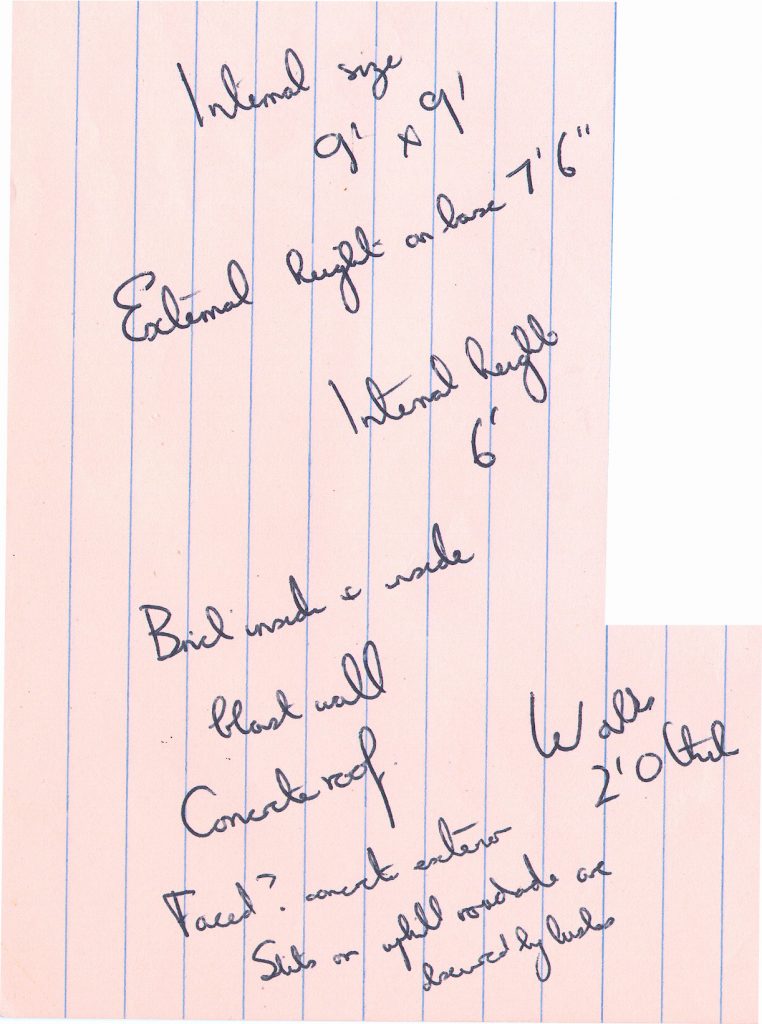 Internal size
9' x 9'
External height on base 7'6"
Internal height
6'
Brick inside & inside
blast wall
Concrete roof
Walls
2'0 thick
Faced? concrete exterior
Slits on uphill roadside are
obscured by bushes